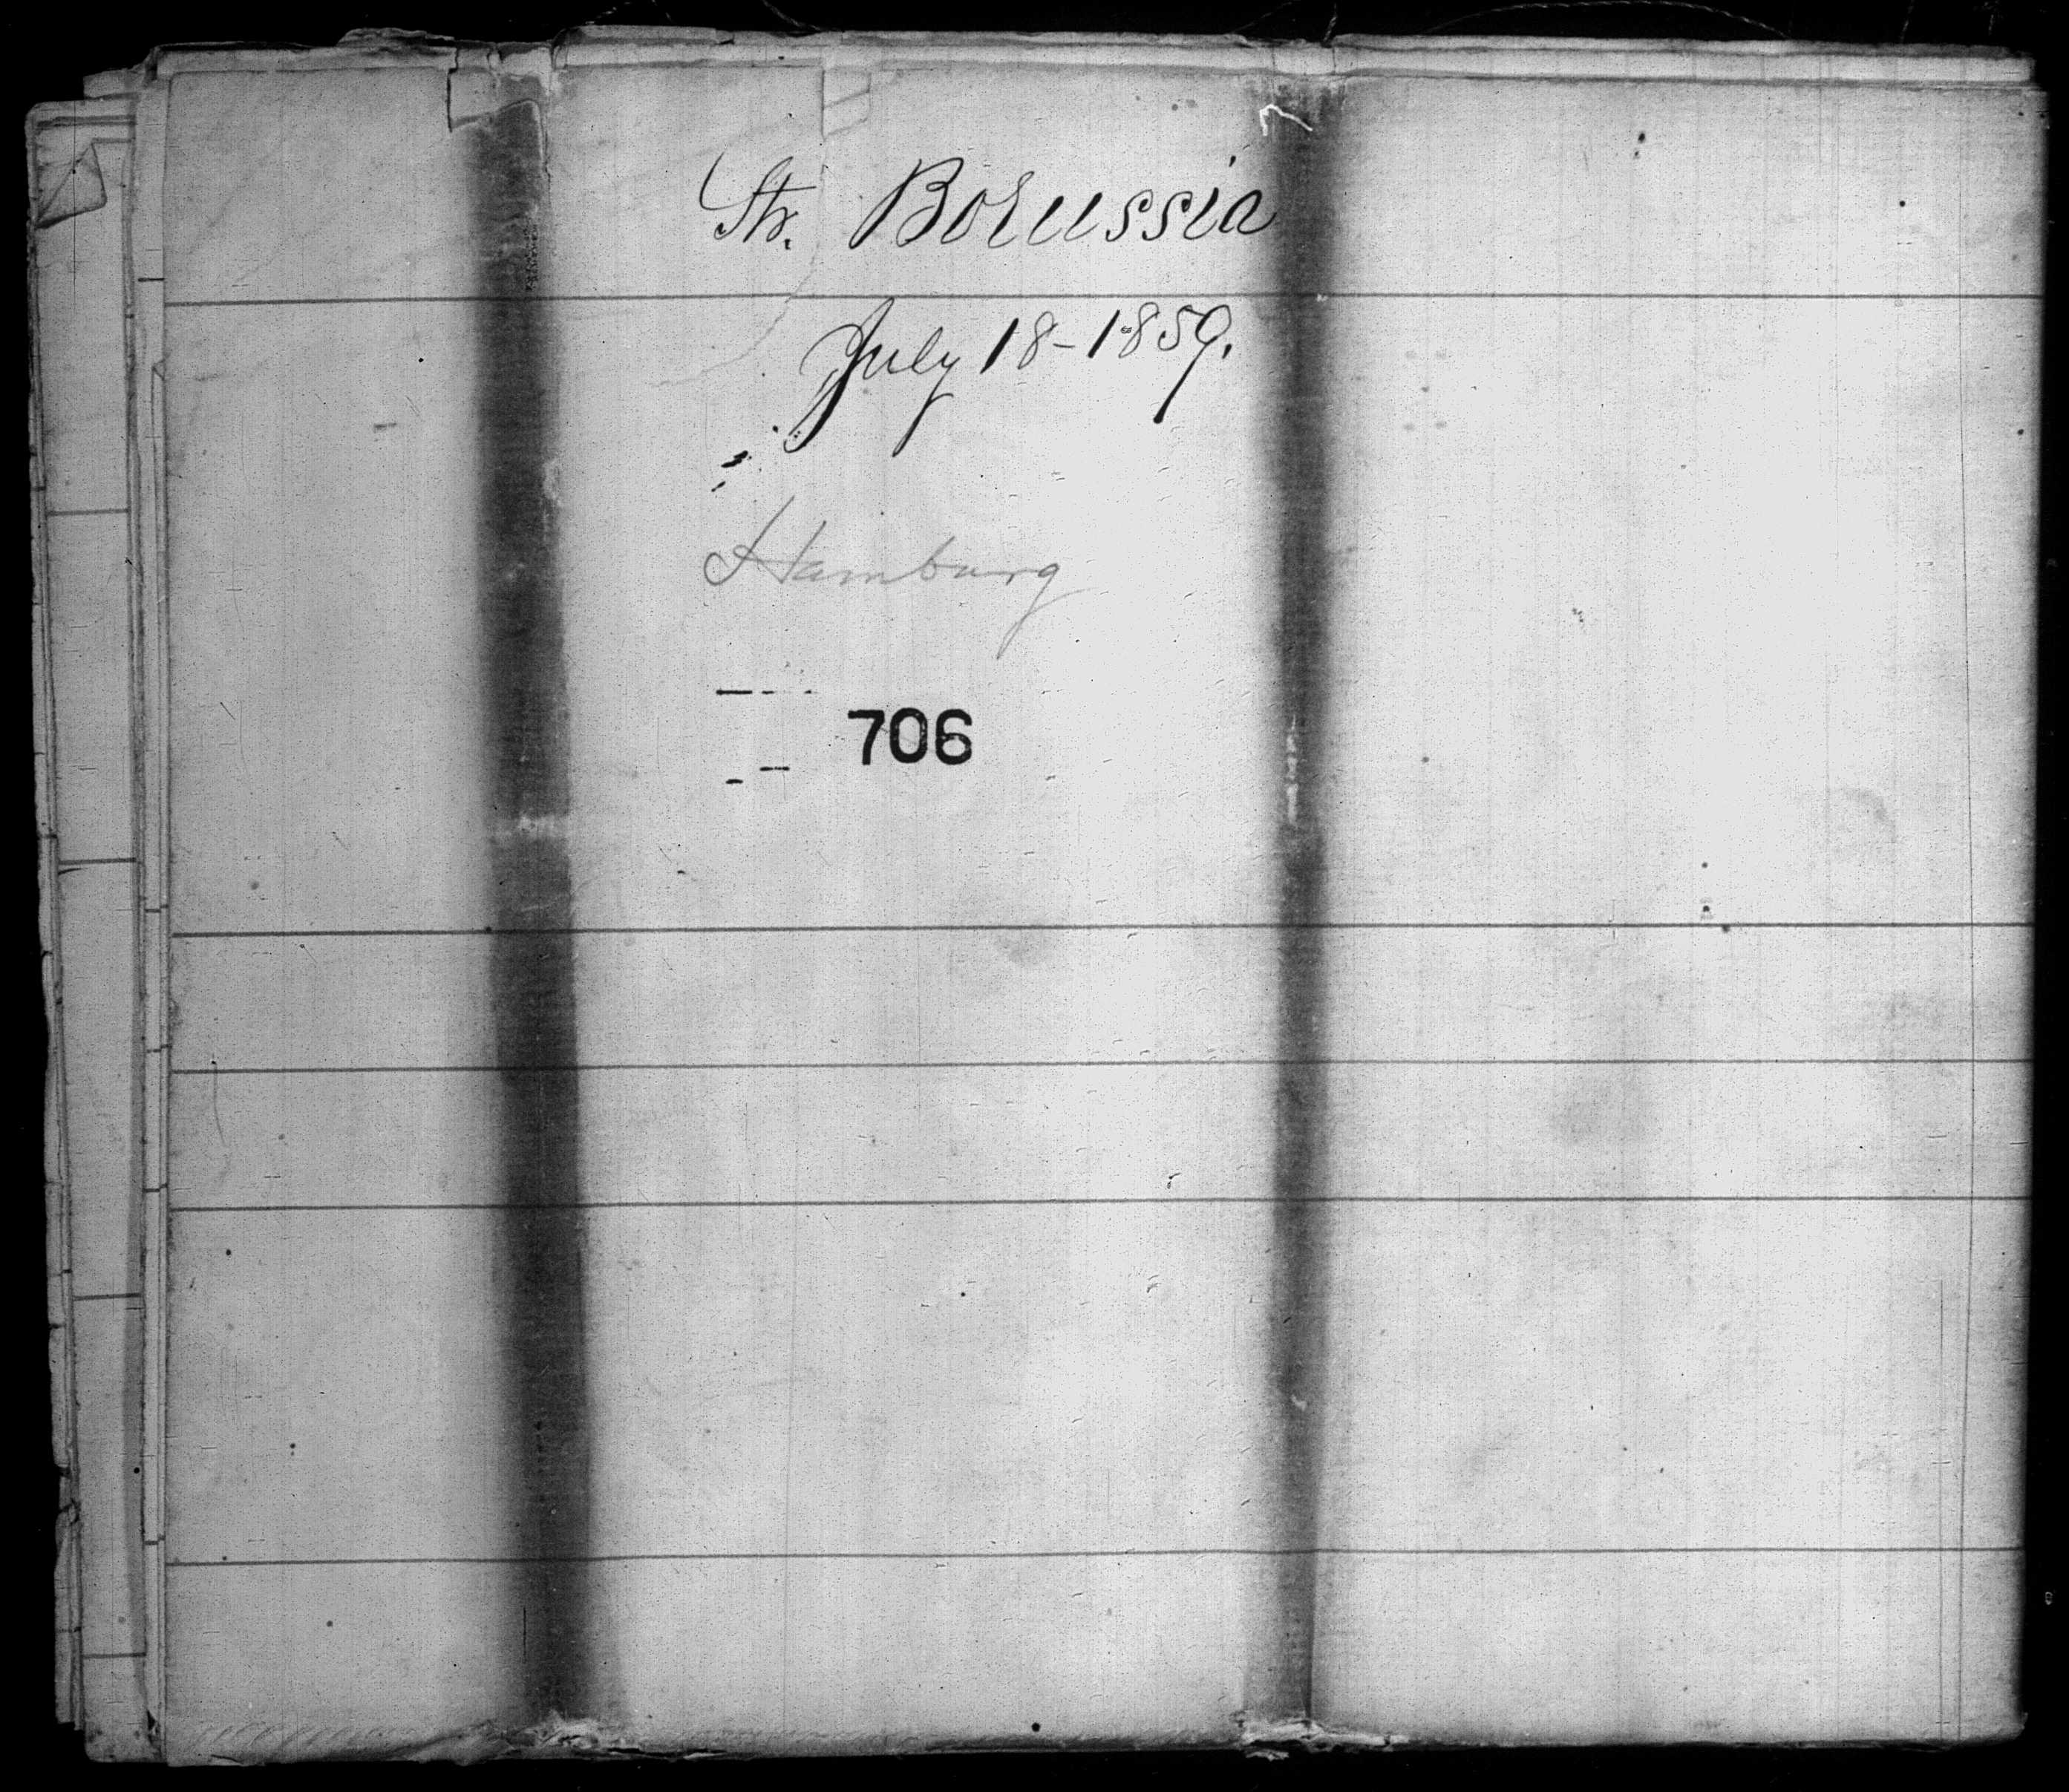 Str. Borussia
July 18-1859.
Hamburg
706